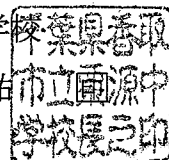 学校
千葉県香取
市立栗源中
学校長之印